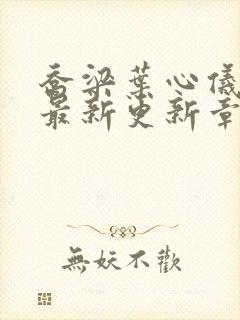 喬梁葉心儀
最新更新章
無妖不歡